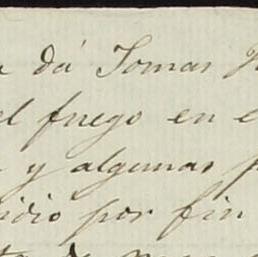 da Tomas
el fuego en e
y algunas p
idio por fin